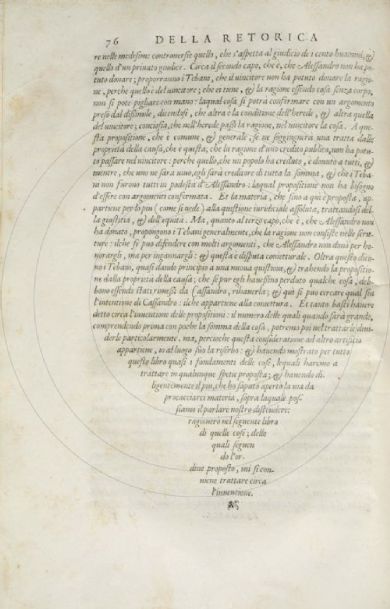 76 DELLA RETORICA
re nelle medesime controuersie quelli, che s'aspetta al giudicio de i cento huomini; &
quello d'un priuato giudice. Circa il secondo capo, che è, che Alessandro non ha po-
tuto donare; proporranno i Tebani, che il vincitore non ha potuto donare la ragio-
ne, perche quello è del vincitore; che ei tiene, & la ragione essendo cosa senza corpo,
non si può pigliare con mano: laqual cosa si potrà confirmare con un argomento
preso dal dissimile, dicendosi, che altra è la conditione dell'herede, & altra quella
del vincitore; conciosia, che nell'herede passi la ragione, nel vincitore la cosa. A que-
sta propositione, che è comune, & generale, se ne soggiungerà una tratta dalla
proprietà della causa, che è questa; che la ragione d'uno credito publico, non ha potu-
to passare nel vincitore: perche quello, che un popolo ha creduto, è douuto a tutti, &
mentre, che uno ne sarà viuo, egli sarà creditore di tutta la somma, & che i Teba-
ni non furono tutti in podestà d'Alessandro: laqual propositione non ha bisogno
d'essere con argomenti confirmata. Et la materia, che sino a qui è proposta, ap-
partiene per lo più (come si uede) alla quistione iuridiciale assoluta, trattandosi del
la giustitia, & dell'equità. Ma, quanto al terzo capo, che è, che Alessandro non
ha donato, propongono i Tebani generalmente, che la ragione non consiste nelle scrit-
ture: ilche si può difendere con molti argomenti, che Alessandro non donò per ho-
norargli, ma per ingannargli: & questa è disputa conietturale. Oltra questo dico-
no i Tebani, quasi dando principio a una nuoua quistione, & trahendo la propositio-
ne dalla proprietà della causa; che se pure egli hauessino perduto qualche cosa, deb-
bono essendo stati rimessi da Cassandro, rihauerla; & qui si può cercare qual sia
l'intentione di Cassandro: ilche appartiene alla coniettura. Et tanto basti hauere
detto circa l'inuentione delle propositioni: il numero delle quali quando sarà grande,
comprendendo prima con poche la somma della cosa, potremo poi nel trattarle diui-
derle particolarmente. ma, percioche questa consideratione ad altro artificio
appartiene, in altro luogo sua la riserbo: & hauendo mostrato per tutto
questo libro quasi i fondamenti delle cose, lequali haremo a
trattare in qualunque spetie proposta; & hauendo di-
ligentemente il più, che ho saputo aperto la uia da
procacciarci materia, sopra laquale pos-
siamo il parlare nostro distendere:
ragionerò nel seguente libro
di quelle cose; delle
quali seguen
do l'or-
dine proposto, mi si con-
uiene trattare circa
l'inuentione.